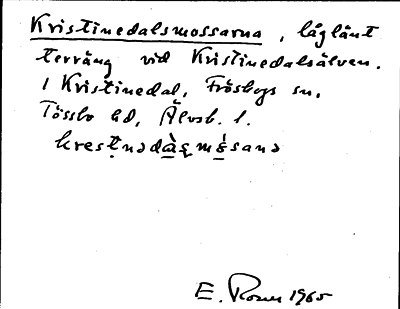 Kristinedalsmossarna, låglänt
terräng vid Kristinedalsälven.
1 Kristinedal, Fröskogs sn,
Tössbo hd, Älvsb. l.
E. Rosen 1965